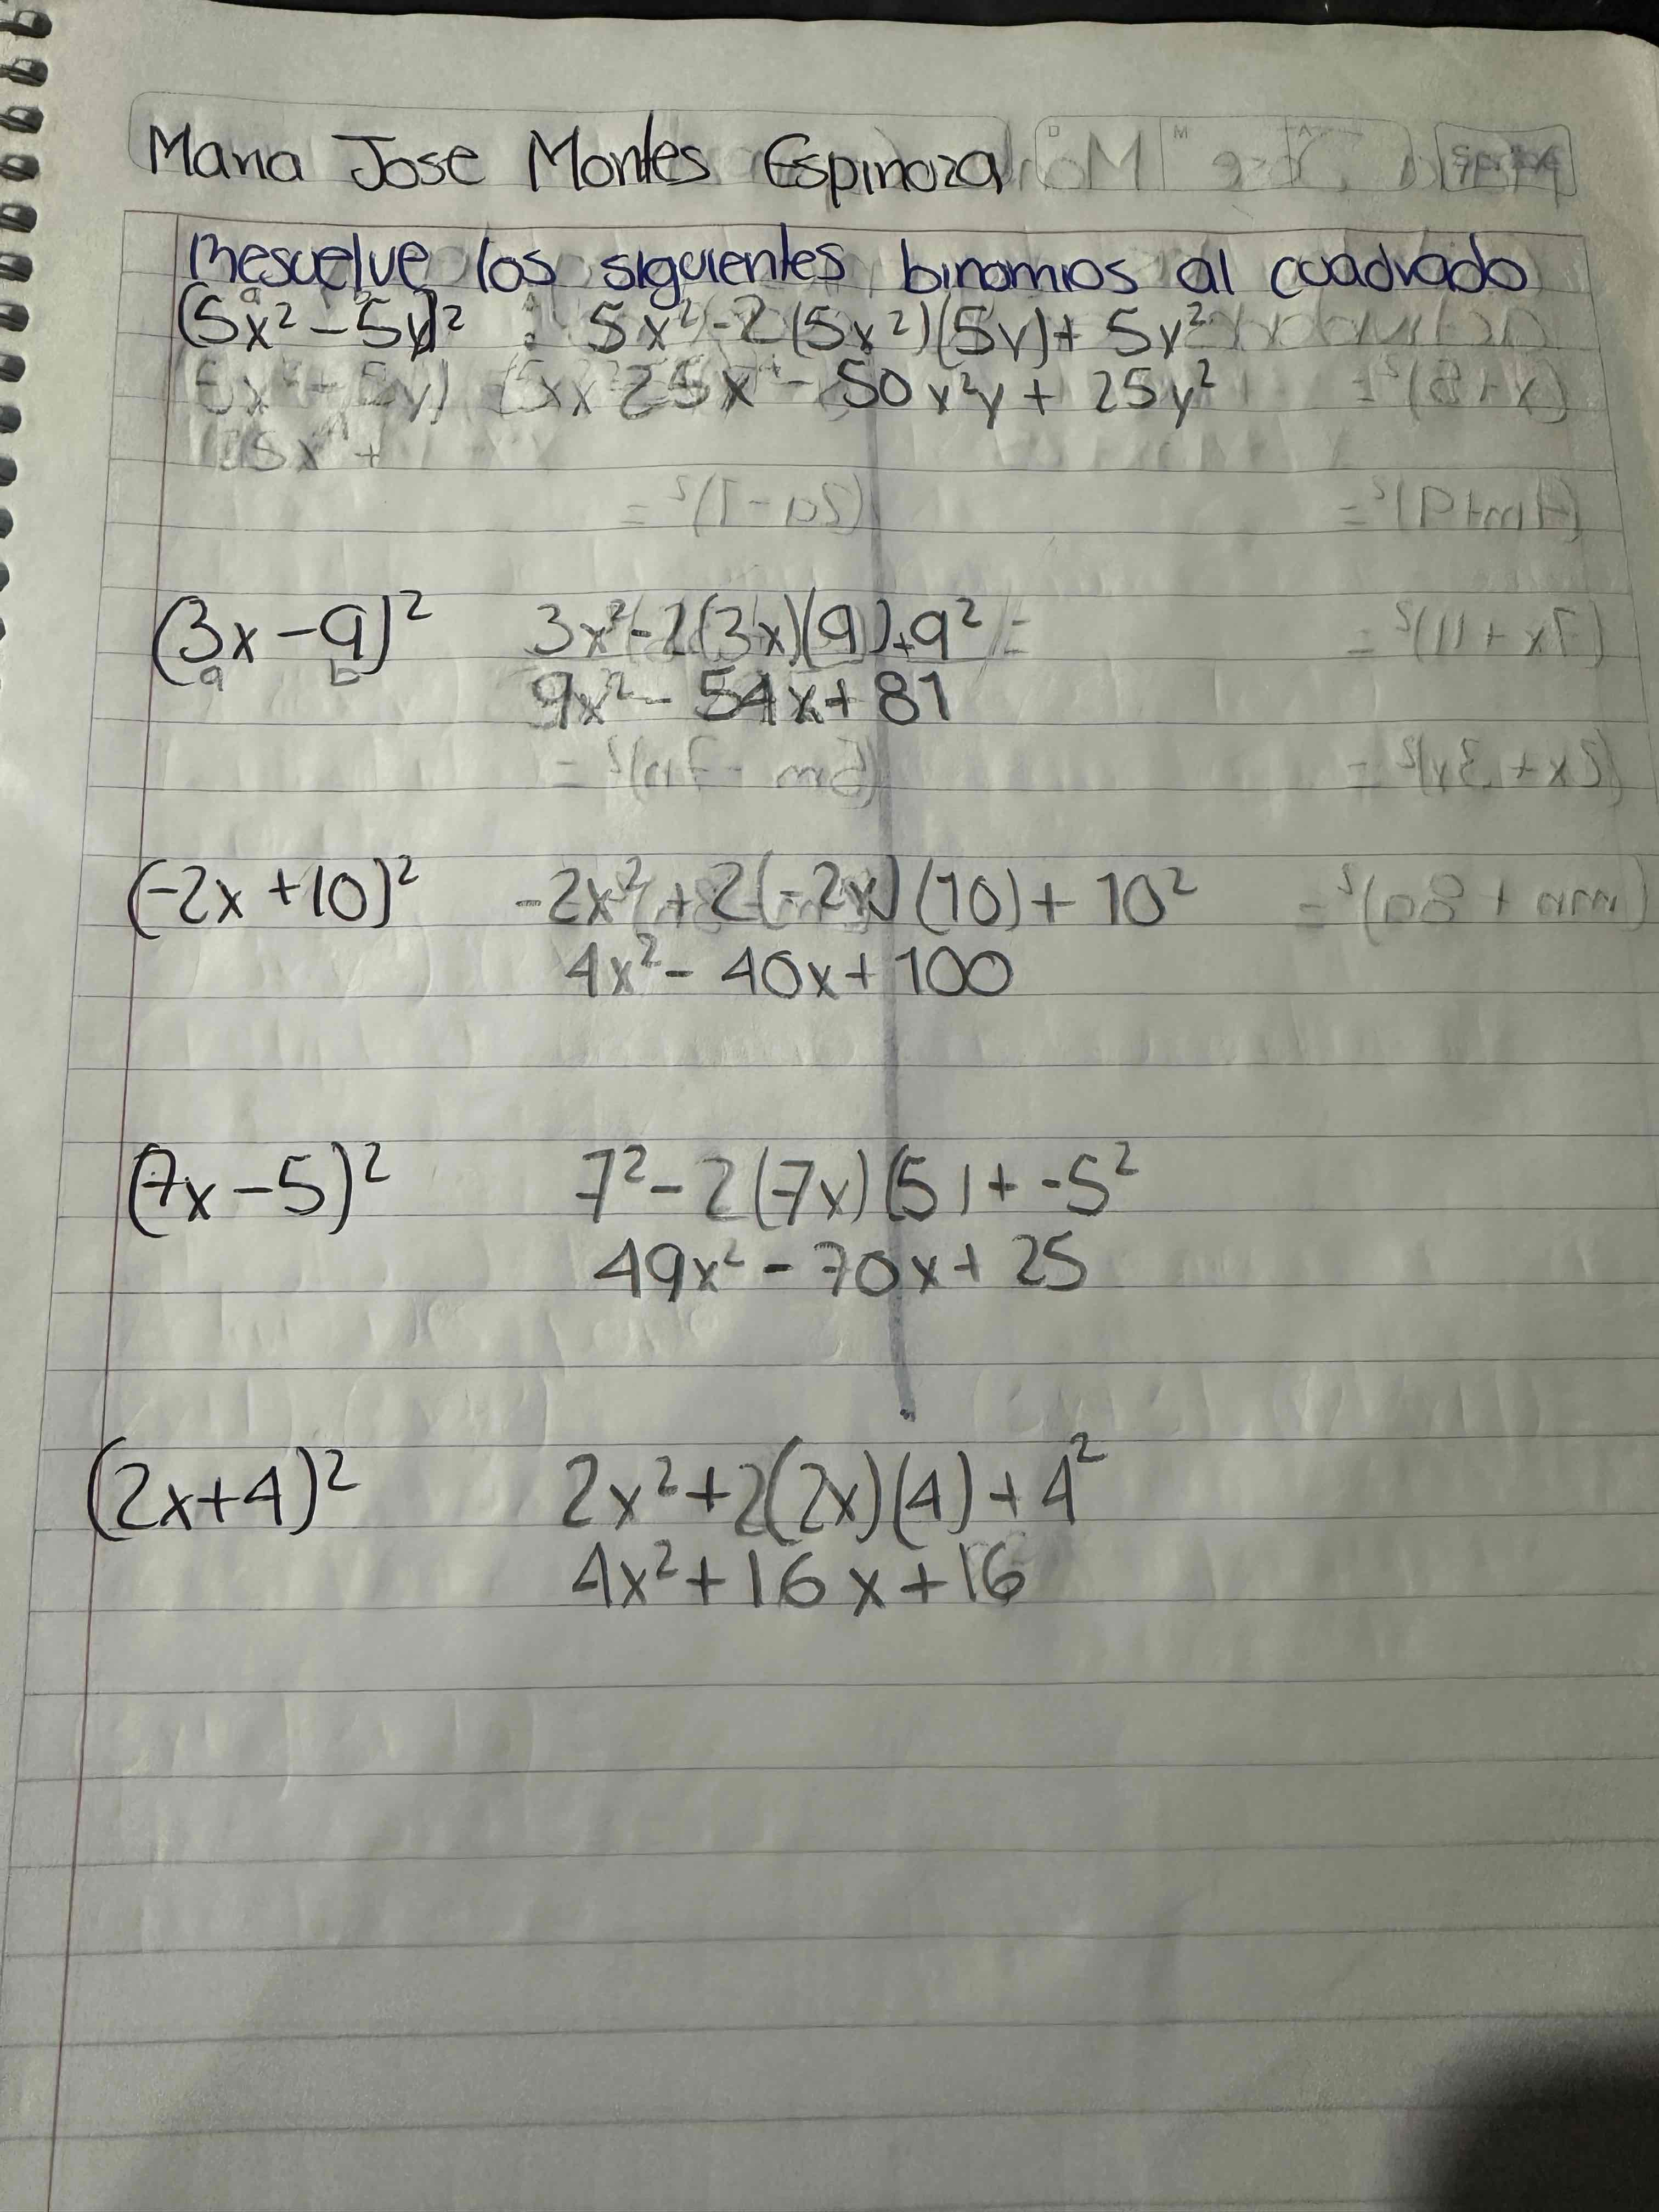 Maria Jose Montes Espinoza
Resuelve los siguientes binomios al cuadrado
(5x² - 5y)² : 5x² - 2(5x²)(5y) + 5y²
25x⁴ - 50x²y + 25y²
(3x - 9)² 3x² - 2(3x)(9) + 9²
a b
9x² - 54x + 81
(-2x + 10)² -2x² + 2(-2x)(10) + 10²
4x² - 40x + 100
(7x - 5)² 7² - 2(7x)(5) + -5²
49x² - 70x + 25
(2x+4)² 2x² + 2(2x)(4) + 4²
4x² + 16x + 16